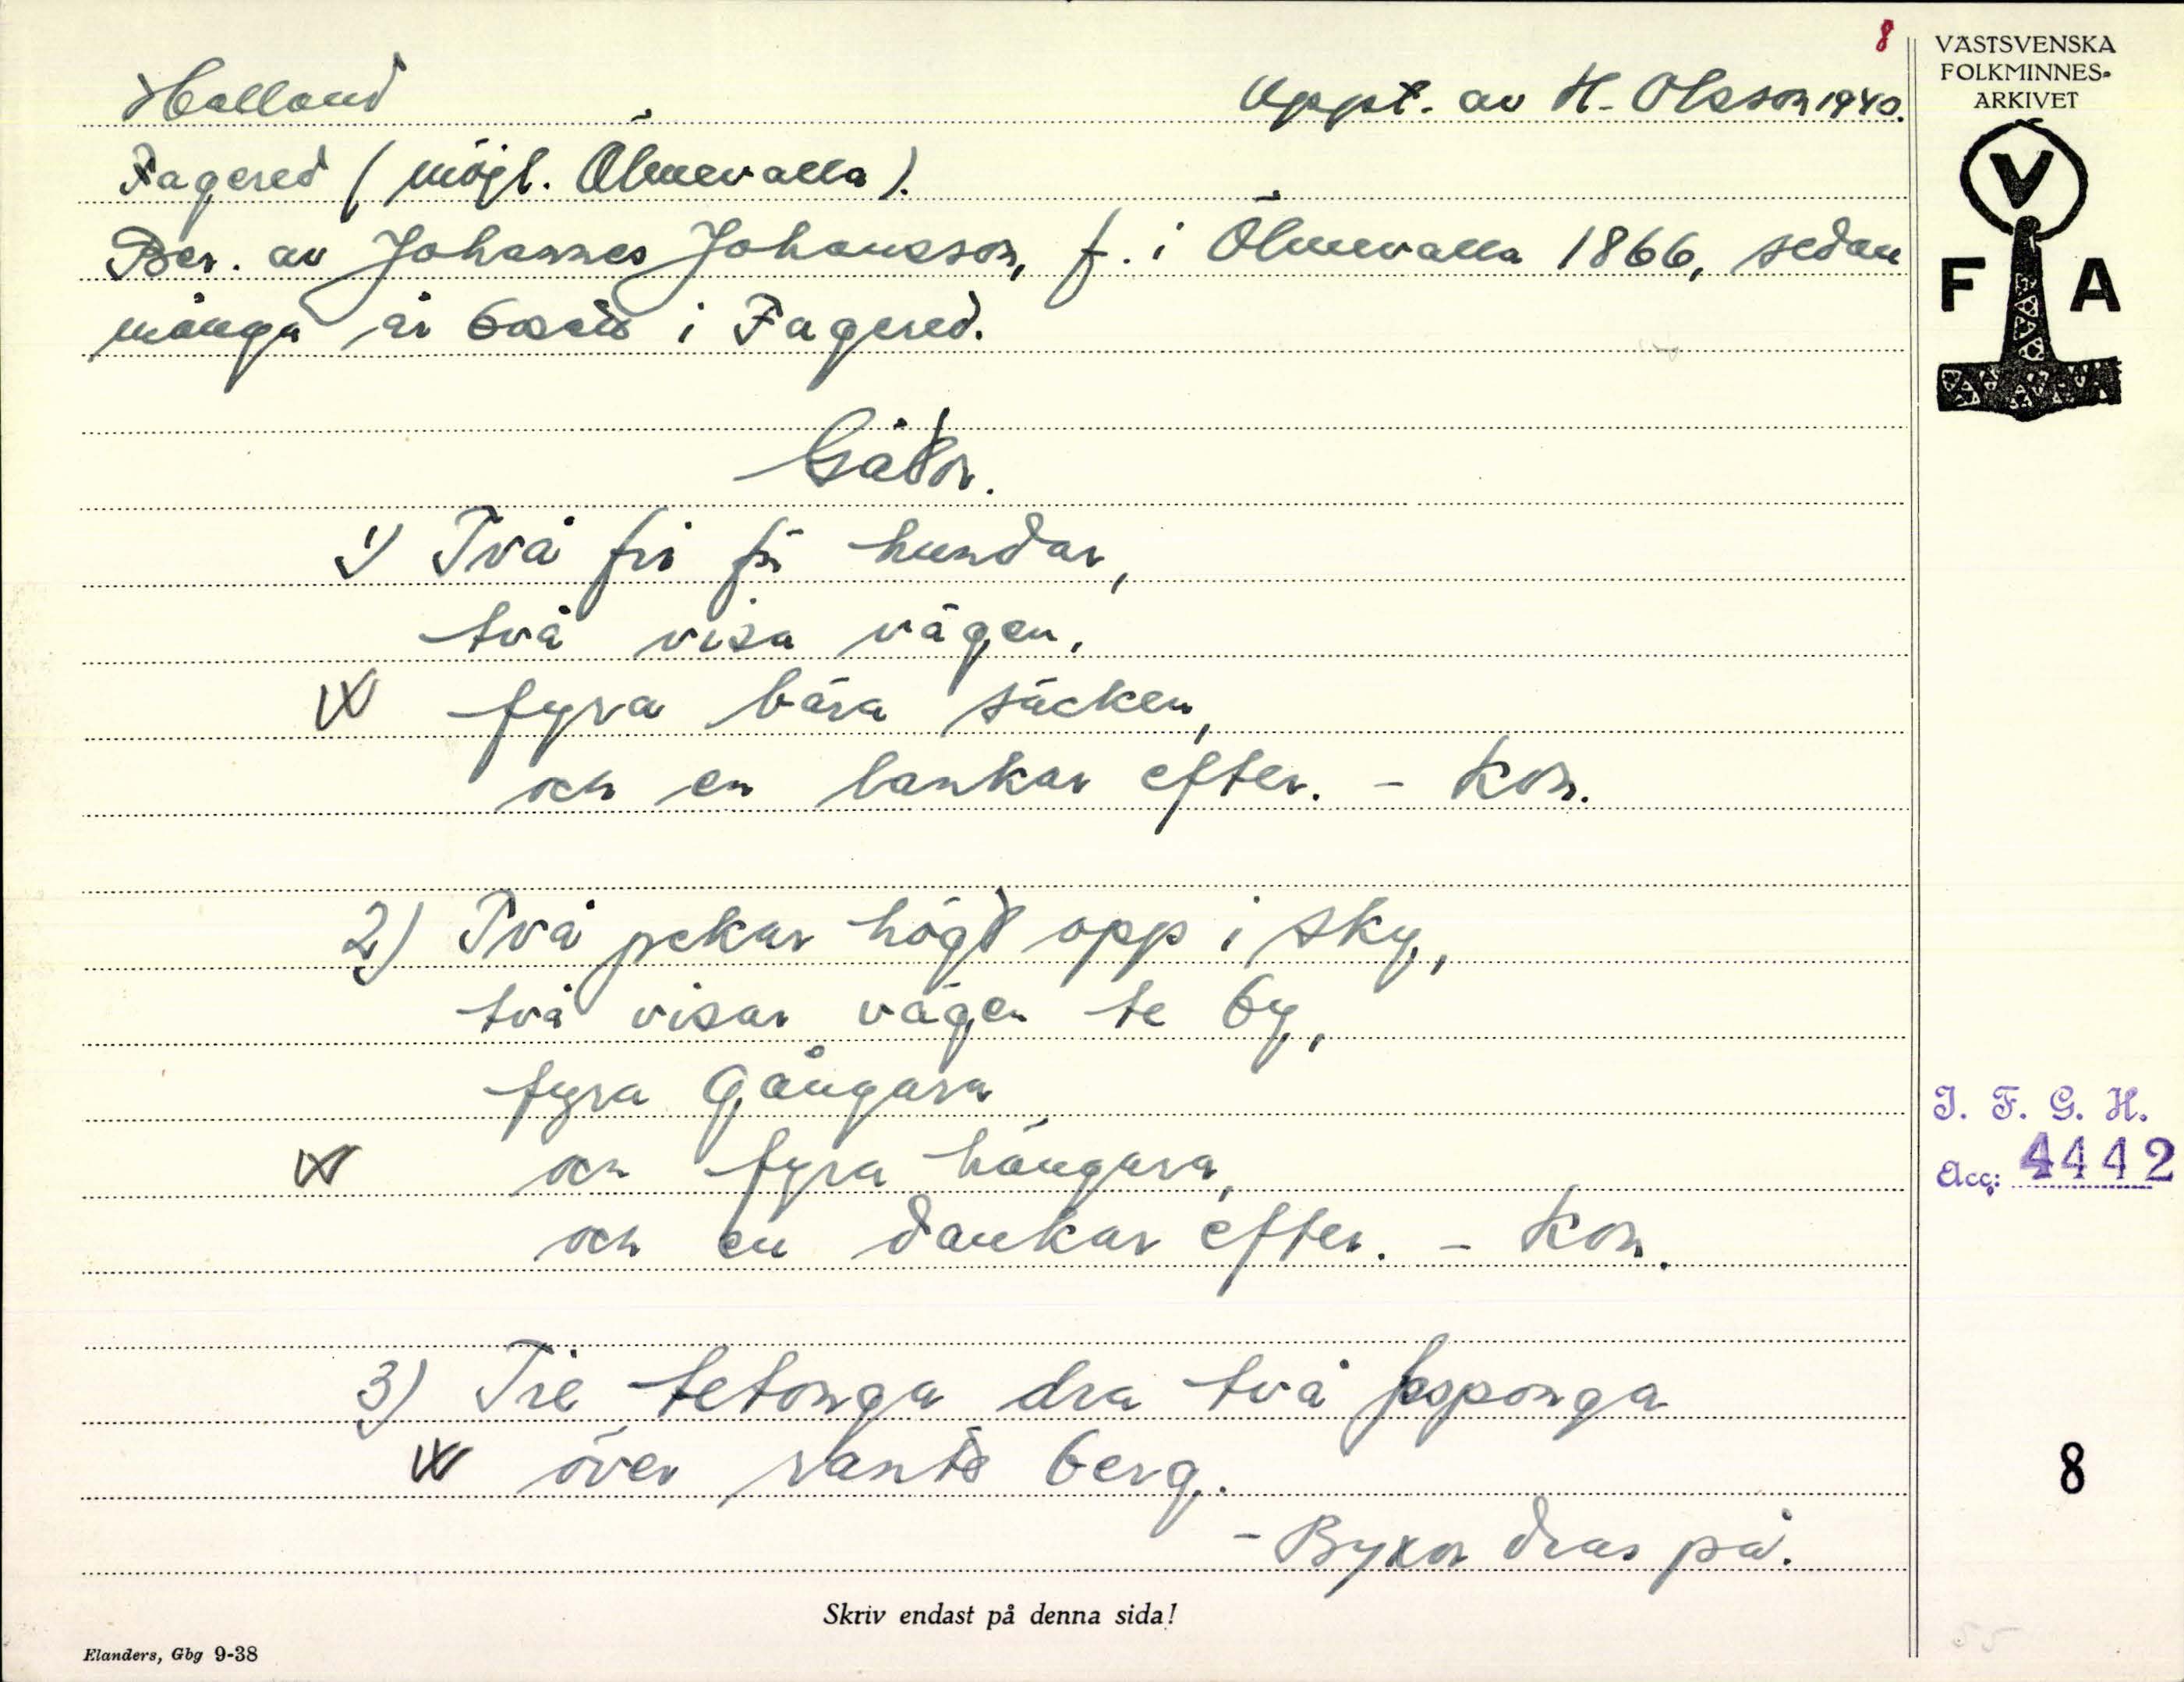 8
VÄSTSVENSKA
FOLKMINNES-
ARKIVET
V
F A
Halland Uppt. av H. Olsson 1940.
Fagered (möjl. Ölmevalla).
Ber. av Johannes Johansson, f. i Ölmevalla 1866, sedan
många år bosatt i Fagered.
Gåtor.
1) Två fri för hundar,
två visa vägen,
fyra bära säcken,
och en lankar efter. - Kon.
2) Två pekar högt opp i sky,
två visar vägen te by,
fyra gångara
och fyra hängara,
och en dankar efter. - Kon.
3) Tie tetonga dra två
över rants berg.
- Byxor dras på.
I. F. G. H.
Acc: 4442
8
Skriv endast på denna sida!
Elanders, Gbg 9-38
55